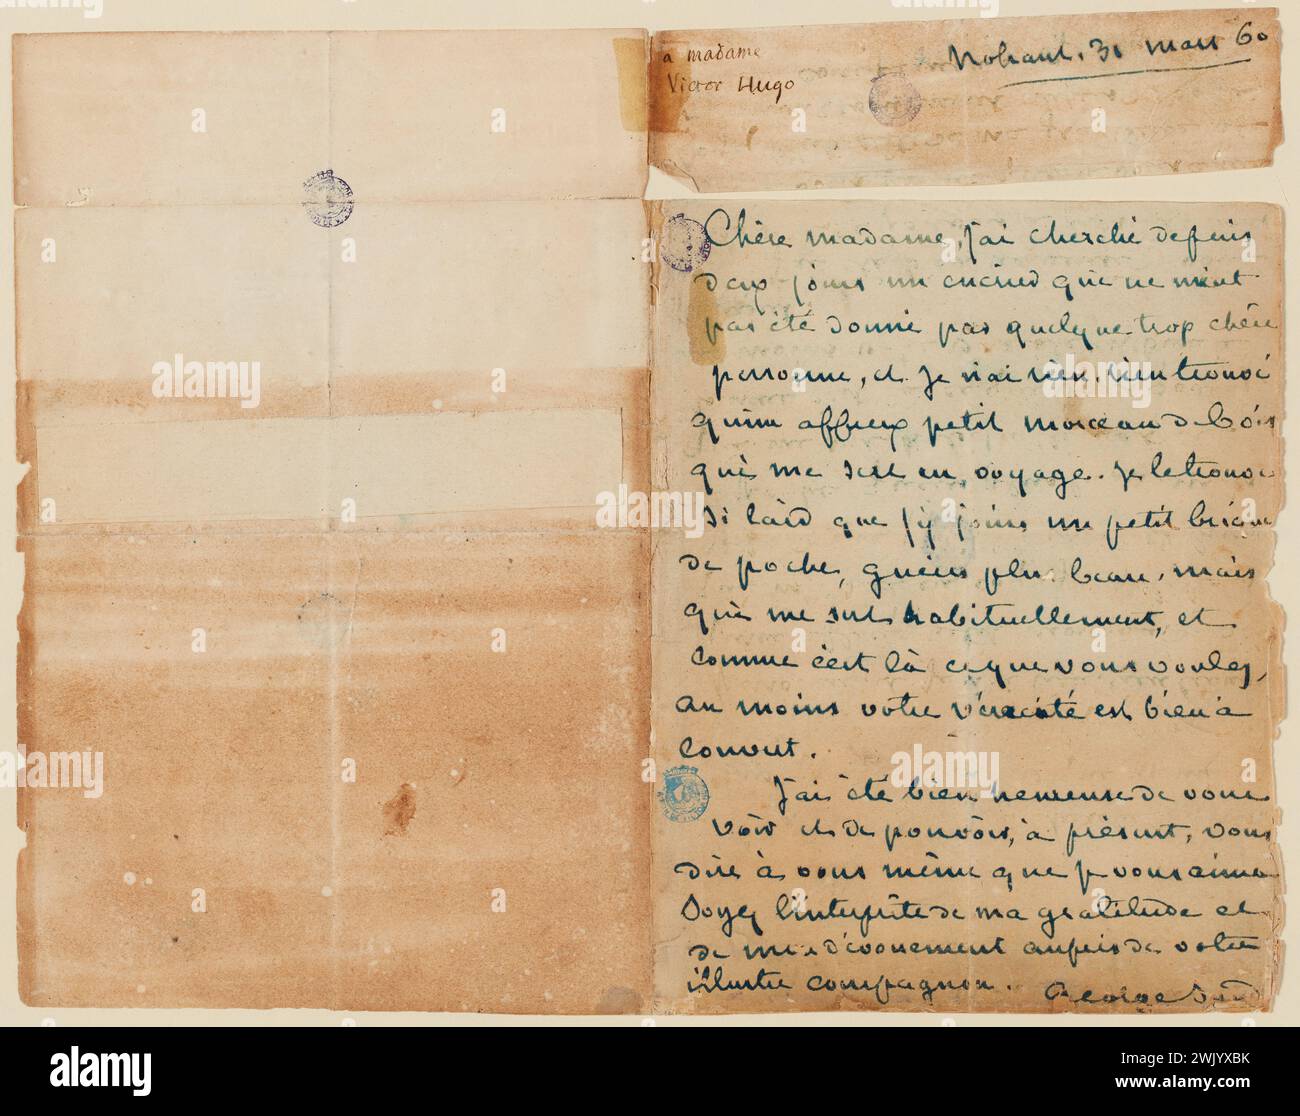 à madame
Victor Hugo
Nohant. 31 mars 60
Chère madame, j'ai cherché depuis
deux jours un encrier qui ne m'eut
pas été donné par quelque trop chère
personne, et je n'ai rien, rien trouvé
qu'un affreux petit morceau de bois
qui me sert en voyage. Je le trouve
si laid que j'y joins un petit briquet
de poche, guères plus beau, mais
qui me sert habituellement, et
comme c'est là ce que vous voulez,
au moins votre véracité est bien à
couvert.
J'ai été bien heureuse de vous
voir et de pouvoir, à présent, vous
dire à vous même que je vous aime
Soyez l'interprète de ma gratitude et
de mon dévouement auprès de votre
illustre compagnon. George Sand
alamy
Image ID: 2WJYXBK
www.alamy.com